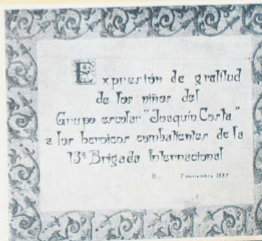 Expresión de gratitud
de los niños del
Grupo escolar "Joaquín Costa"
a los heroicos combatientes de la
13ª Brigada Internacional
noviembre 1937